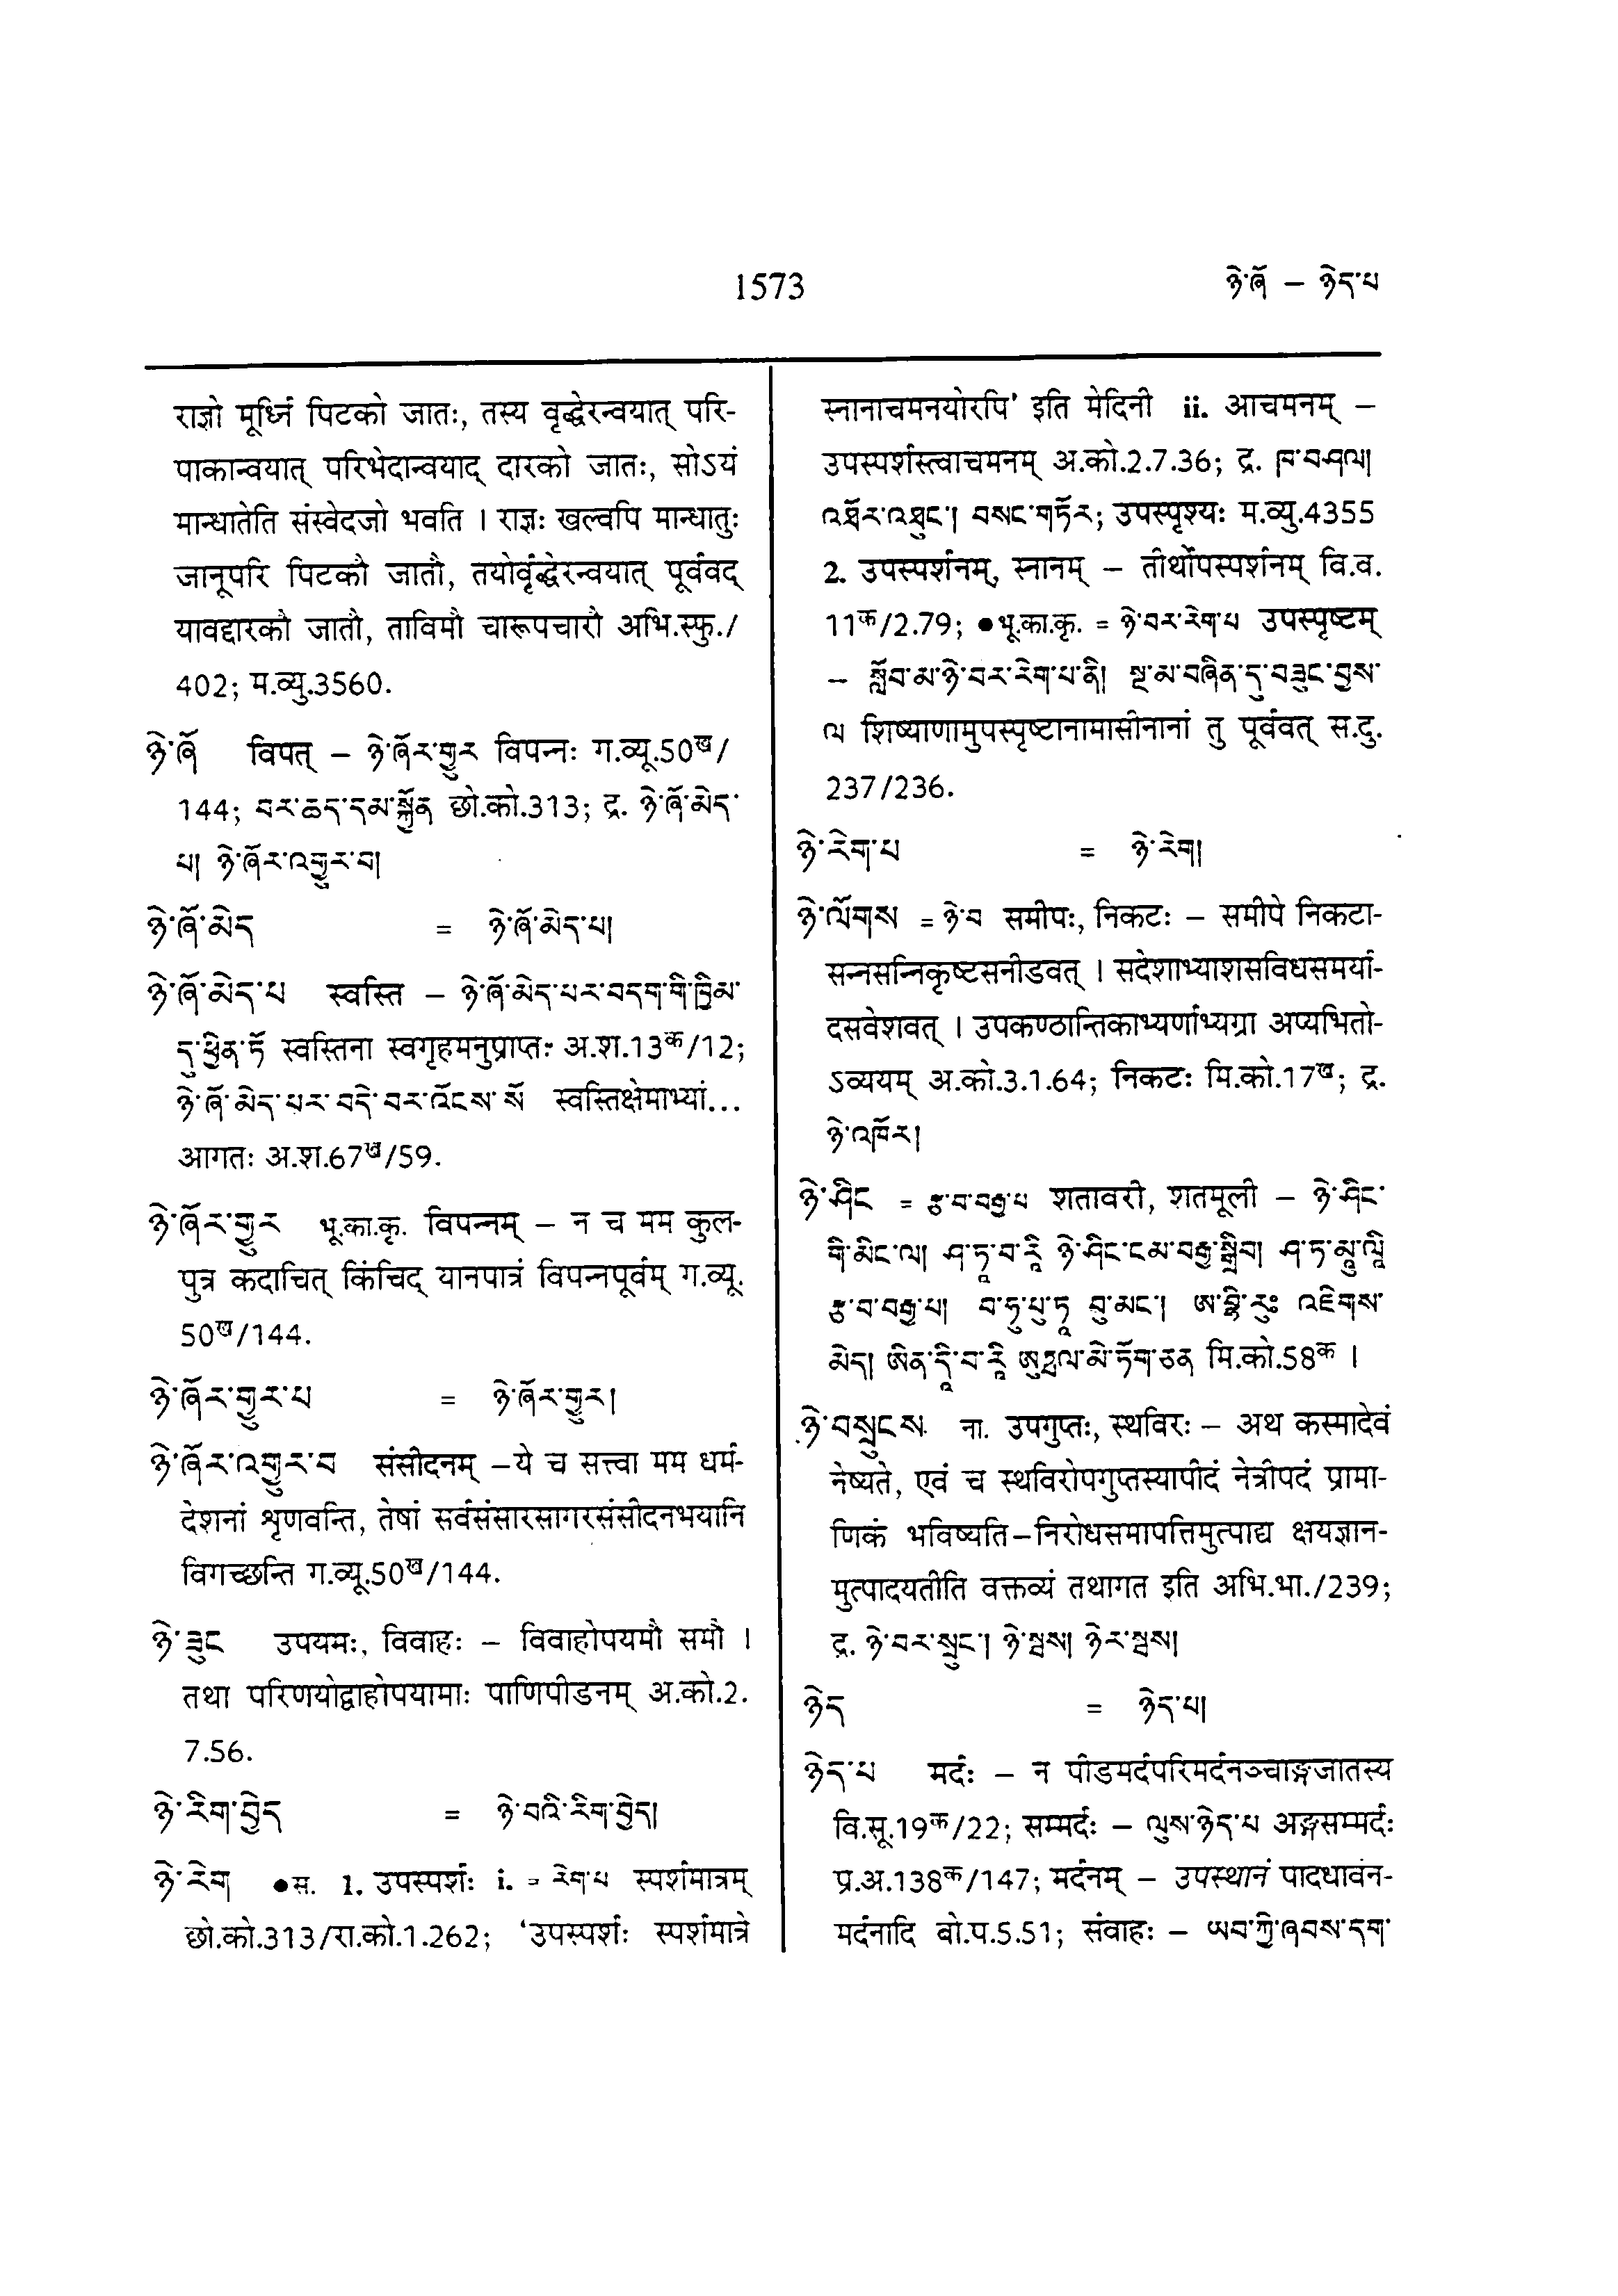 1573
ཉེ་ཞོ – ཉེད་པ
राज्ञो मूर्ध्नि पिटको जातः, तस्य वृद्धेरन्वयात् परि-
पाकान्वयात् परिभेदान्वयाद् दारको जातः, सोऽयं
मान्धातेति संस्वेदजो भवति । राज्ञः खल्वपि मान्धातुः
जानूपरि पिटकौ जातौ, तयोर्वृद्धेरन्वयात् पूर्ववद्
यावद्दारकौ जातौ, ताविमौ चारूपचारौ अभि.स्फु./
402; म.व्यु.3560.
ཉེ་ཞོ विपत् – ཉེ་ཞོར་གྱུར विपन्नः ग.व्यू.50ख/
144; བར་ཆད་དམ་སྐྱོན छो.को.313; द्र. ཉེ་ཞོ་མེད་
པ། ཉེ་ཞོར་འགྱུར་བ།
ཉེ་ཞོ་མེད = ཉེ་ཞོ་མེད་པ།
ཉེ་ཞོ་མེད་པ स्वस्ति – ཉེ་ཞོ་མེད་པར་བདག་གི་ཁྱིམ་
དུ་ཕྱིན་ཏོ स्वस्तिना स्वगृहमनुप्राप्तः अ.श.13क/12;
ཉེ་ཞོ་མེད་པར་བདེ་བར་འོངས་སོ स्वस्तिक्षेमाभ्यां...
आगतः अ.श.67ख/59.
ཉེ་ཞོར་གྱུར भू.का.कृ. विपन्नम् – न च मम कुल-
पुत्र कदाचित् किंचिद् यानपात्रं विपन्नपूर्वम् ग.व्यू.
50ख/144.
ཉེ་ཞོར་གྱུར་པ = ཉེ་ཞོར་གྱུར།
ཉེ་ཞོར་འགྱུར་བ संसीदनम् –ये च सत्त्वा मम धर्म-
देशनां शृणवन्ति, तेषां सर्वसंसारसागरसंसीदनभयानि
विगच्छन्ति ग.व्यू.50ख/144.
ཉེ་ཟུང उपयमः, विवाहः – विवाहोपयमौ समौ ।
तथा परिणयोद्वाहोपयामाः पाणिपीडनम् अ.को.2.
7.56.
ཉེ་རིག་བྱེད = ཉེ་བའི་རིག་བྱེད།
ཉེ་རེག ●स. 1. उपस्पर्शः i. = རེག་པ स्पर्शमात्रम्
छो.को.313/रा.को.1.262; 'उपस्पर्शः स्पर्शमात्रे
स्नानाचमनयोरपि' इति मेदिनी ii. आचमनम् –
उपस्पर्शस्त्वाचमनम् अ.को.2.7.36; द्र. ཁ་བཤལ།
འཐོར་འཐུང་། བསང་གཏོར; उपस्पृश्यः म.व्यु.4355
2. उपस्पर्शनम्, स्नानम् – तीर्थोपस्पर्शनम् वि.व.
11क/2.79; ●भू.का.कृ. = ཉེ་བར་རེག་པ उपस्पृष्टम्
– སློབ་མ་ཉེ་བར་རེག་པ་ནི། སྔ་མ་བཞིན་དུ་བཟུང་བྱས་
ལ शिष्याणामुपस्पृष्टानामासीनानां तु पूर्ववत् स.दु.
237/236.
ཉེ་རེག་པ = ཉེ་རེག།
ཉེ་ལོགས = ཉེ་བ समीपः, निकटः – समीपे निकटा-
सन्नसन्निकृष्टसनीडवत् । सदेशाभ्याशसविधसमर्या-
दसवेशवत् । उपकण्ठान्तिकाभ्यर्णाभ्यग्रा अप्यभितो-
ऽव्ययम् अ.को.3.1.64; निकटः मि.को.17ख; द्र.
ཉེ་འཁོར།
ཉེ་ཤིང = རྩ་བ་བརྒྱ་པ शतावरी, शतमूली – ཉེ་ཤིང་
གི་མིང་ལ། ཤ་ཏཱ་བ་རཱི ཉེ་ཤིང་ངམ་བརྒྱ་སྒྲིབ། ཤ་ཏ་མཱུ་ལཱི
རྩ་བ་བརྒྱ་པ། བ་ཧུ་པུ་ཏཱ བུ་མང་། ཨ་བྷི་རུཿ འཇིགས་
མེད། ཨིན་དཱི་བ་རཱི ཨུཏྤལ་མེ་ཏོག་ཅན मि.को.58क ।
ཉེ་བསྲུངས ना. उपगुप्तः, स्थविरः – अथ कस्मादेवं
नेष्यते, एवं च स्थविरोपगुप्तस्यापीदं नेत्रीपदं प्रामा-
णिकं भविष्यति–निरोधसमापत्तिमुत्पाद्य क्षयज्ञान-
मुत्पादयतीति वक्तव्यं तथागत इति अभि.भा./239;
द्र. ཉེ་བར་སྲུང་། ཉེ་སྦས། ཉེར་སྦས།
ཉེད = ཉེད་པ།
ཉེད་པ मर्दः – न पीडमर्दपरिमर्दनञ्चाङ्गजातस्य
वि.सू.19क/22; सम्मर्दः – ལུས་ཉེད་པ अङ्गसम्मर्दः
प्र.अ.138क/147; मर्दनम् – उपस्थानं पादधावन-
मर्दनादि बो.प.5.51; संवाहः – ཡབ་ཀྱི་ཞབས་དག་